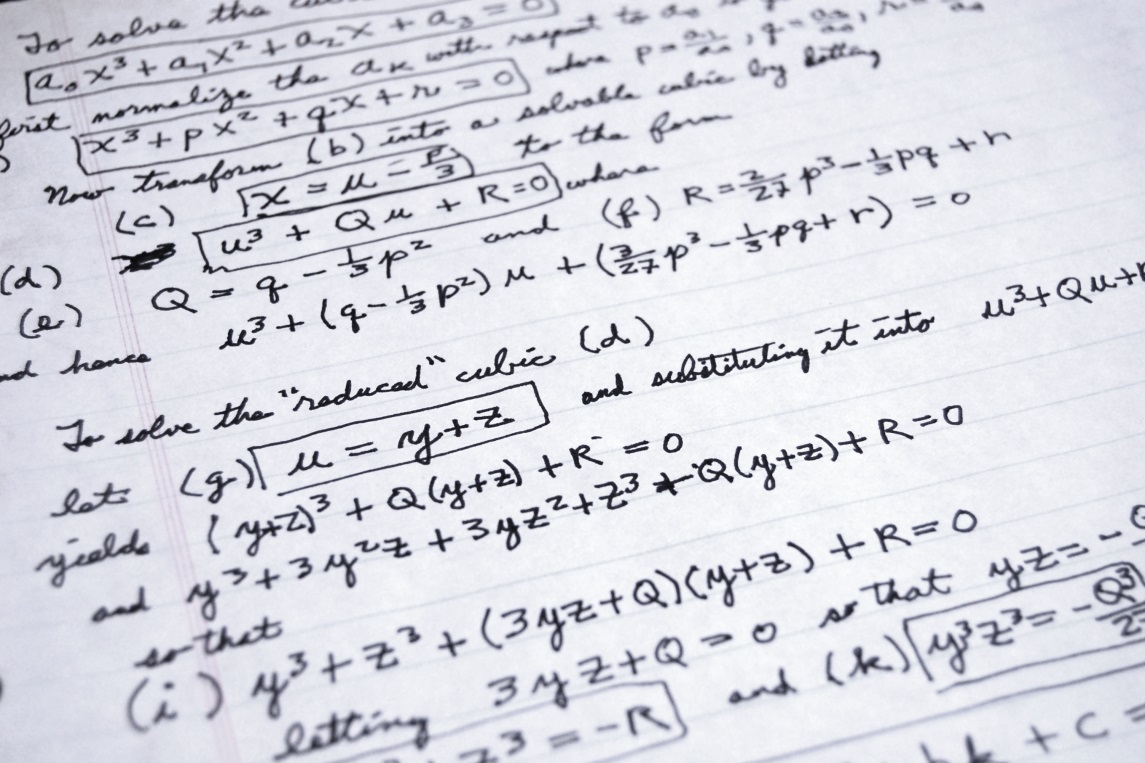 To solve the
a₀x³ + a₁x² + a₂x + a₃ = 0
first normalize the aₖ with respect to a₀
x³ + px² + qx + r = 0 where p = a₁/a₀, q =
Now transform (b) into a solvable cubic by letting
(c) x = u - p/3 to the form
(d) u³ + Qu + R = 0 where
(e) Q = q - 1/3 p² and (f) R = 2/27 p³ - 1/3 pq + r
and hence u³ + (q - 1/3 p²) u + (2/27 p³ - 1/3 pq + r) = 0
To solve the "reduced" cubic (d)
let (g) u = y + z and substituting it into u³ + Qu +
yields (y+z)³ + Q(y+z) + R = 0
and y³ + 3y²z + 3yz² + z³ + Q(y+z) + R = 0
so that
(i) y³ + z³ + (3yz + Q)(y+z) + R = 0
letting 3yz + Q = 0 so that yz = -
z³ = -R and (k) y³z³ = -Q³
+ c =